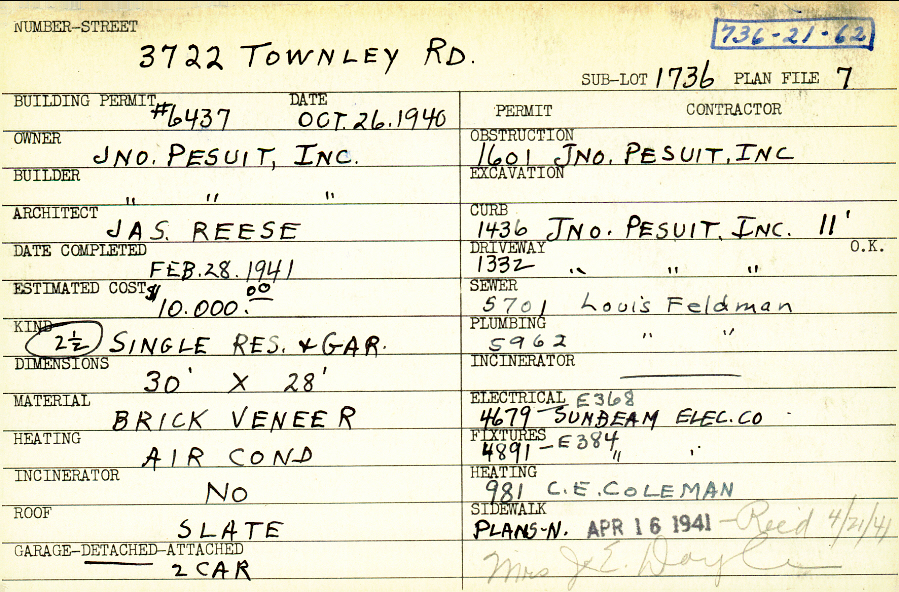 NUMBER-STREET
3722 TOWNLEY RD.
736-21-62
SUB-LOT 1736 PLAN FILE 7
BUILDING PERMIT #6437 DATE OCT. 26. 1940
OWNER
JNO. PESUIT, INC.
BUILDER
" " "
ARCHITECT
JAS. REESE
DATE COMPLETED
FEB. 28. 1941
ESTIMATED COST $10.000.00
KIND
2½ SINGLE RES. & GAR.
DIMENSIONS
30' X 28'
MATERIAL
BRICK VENEER
HEATING
AIR COND
INCINERATOR
NO
ROOF
SLATE
GARAGE-DETACHED-ATTACHED
2 CAR
PERMIT CONTRACTOR
OBSTRUCTION
1601 JNO. PESUIT, INC
EXCAVATION
CURB
1436 JNO. PESUIT, INC. 11'
DRIVEWAY O.K.
1332 " " "
SEWER
5701 Louis Feldman
PLUMBING
5962 " "
INCINERATOR
ELECTRICAL E368
4679 - SUNBEAM ELEC. CO
FIXTURES - E384
4891 " "
HEATING
981 C.E. COLEMAN
SIDEWALK
PLANS-N. APR 16 1941 - Rec'd 4/21/41
Mrs J. E. Doyle